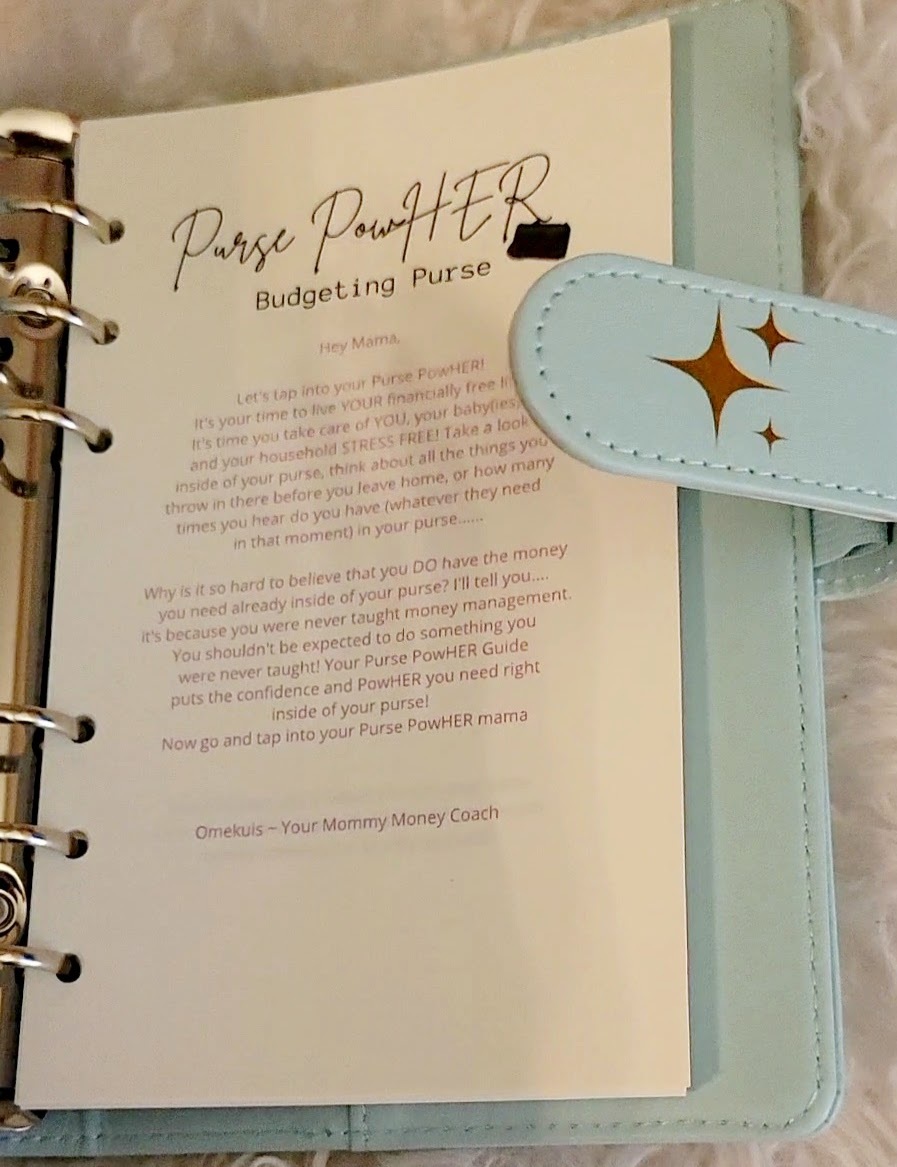 Purse PowHER
Budgeting Purse
Hey Mama,
Let's tap into your Purse PowHER!
It's your time to live YOUR financially free
It's time you take care of YOU, your baby(ies)
and your household STRESS FREE! Take a look
inside of your purse, think about all the things you
throw in there before you leave home, or how many
times you hear do you have (whatever they need
in that moment) in your purse......
Why is it so hard to believe that you DO have the money
you need already inside of your purse? I'll tell you....
it's because you were never taught money management.
You shouldn't be expected to do something you
were never taught! Your Purse PowHER Guide
puts the confidence and PowHER you need right
inside of your purse!
Now go and tap into your Purse PowHER mama
Omekuis ~ Your Mommy Money Coach